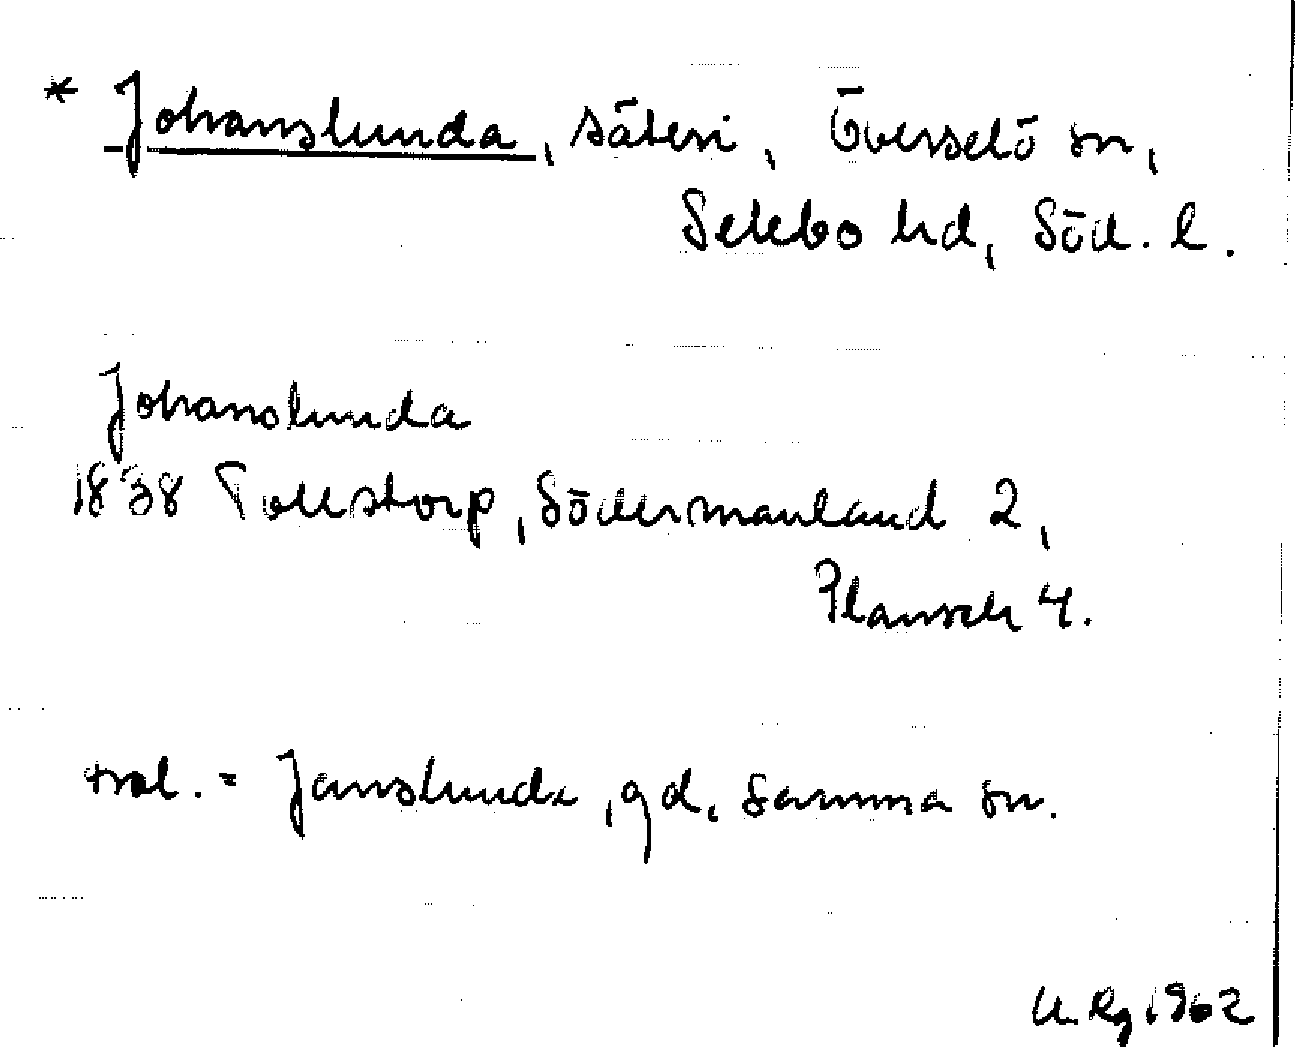 * Johanslunda, säteri, Överselö sn,
Selebo hd, Söd. l.
Johanslunda
1838 Tollstorp, Södermanland 2,
Plansch 4.
trol. = Janslunda, gd, samma sn.
1962